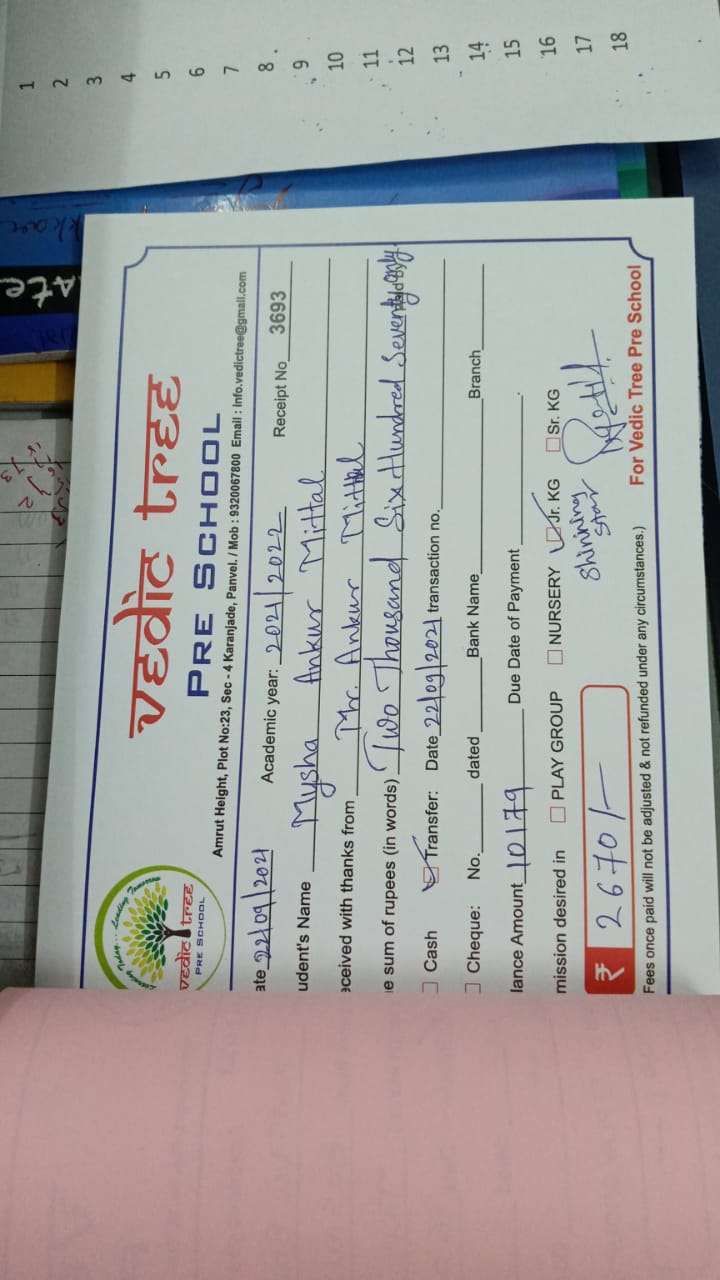 Learning Today... Leading Tomorrow
vedic tree
PRE SCHOOL
vedic tree
PRE SCHOOL
Amrut Height, Plot No:23, Sec - 4 Karanjade, Panvel. / Mob : 9320067800 Email : info.vedictree@gmail.com
ate 22/09/2021 Academic year: 2021/2022 Receipt No 3693
udent's Name Mysha Ankur Mittal
eceived with thanks from Mr. Ankur Mittal
e sum of rupees (in words) Two Thousand Six Hundred Seventy only.
Cash Transfer: Date 22/09/2021 transaction no.
Cheque: No. dated Bank Name Branch
lance Amount 10179 Due Date of Payment
mission desired in PLAY GROUP NURSERY Jr. KG Sr. KG
Shinning
Star
₹ 2670/-
For Vedic Tree Pre School
Fees once paid will not be adjusted & not refunded under any circumstances.)
1
2
3
4
5
6
7
8
9
10
11
12
13
14
15
16
17
18